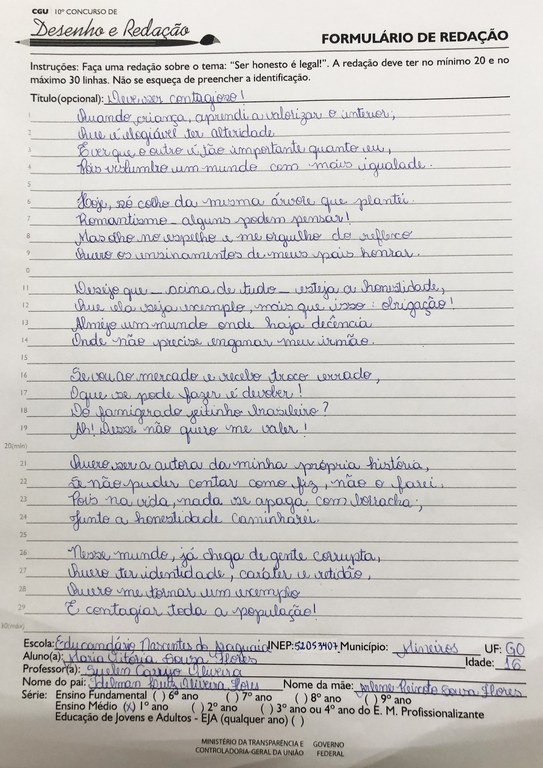 CGU 10º CONCURSO DE
Desenho e Redação
FORMULÁRIO DE REDAÇÃO
Instruções: Faça uma redação sobre o tema: "Ser honesto é legal!". A redação deve ter no mínimo 20 e no
máximo 30 linhas. Não se esqueça de preencher a identificação.
Título(opcional): Deve ser contagioso!
1 Quando criança, aprendi a valorizar o interior,
2 Que é elogiável ter alteridade
3 E ver que o outro é tão importante quanto eu,
4 Pois vislumbro um mundo com mais igualade.
5
6 Hoje, só colho da mesma árvore que plantei.
7 Romantismo _ alguns podem pensar!
8 Mas olho no espelho e me orgulho do reflexo
9 Quero os ensinamentos de meus pais honrar.
0
11 Desejo que _ acima de tudo _ esteja a honestidade,
12 Que ela seja exemplo, mais que isso: obrigação!
13 Almejo um mundo onde haja decência
14 Onde não precise enganar meu irmão.
15
16 Se vou ao mercado e recebo troco errado,
17 O que se pode fazer é devolver!
18 Do famigerado jeitinho brasileiro?
19 Ah! Desse não quero me valer!
20(mín)
21 Quero ser a autora da minha própria história,
22 Se não puder contar como fiz, não o farei.
23 Pois na vida, nada se apaga com borracha;
24 Junto a honestidade caminharei.
25
26 Nesse mundo, já chega de gente corrupta,
27 Quero ter identidade, caráter e retidão,
28 Quero me tornar um exemplo
29 E contagiar toda a população!
30(máx)
Escola: Educandário Nascentes do Araguaia INEP: 52053407 Município: Mineiros UF: GO
Aluno(a): Maria Vitória Souza Flores Idade: 16
Professor(a): Suelen Carrijo Oliveira
Nome do pai: Oliveira Flores Nome da mãe: Souza Flores
Série: Ensino Fundamental ( ) 6º ano ( ) 7º ano ( ) 8º ano ( ) 9º ano
Ensino Médio (x) 1º ano ( ) 2º ano ( ) 3º ano ou 4º ano do E. M. Profissionalizante
Educação de Jovens e Adultos - EJA (qualquer ano) ( )
MINISTÉRIO DA TRANSPARÊNCIA E GOVERNO
CONTROLADORIA-GERAL DA UNIÃO FEDERAL